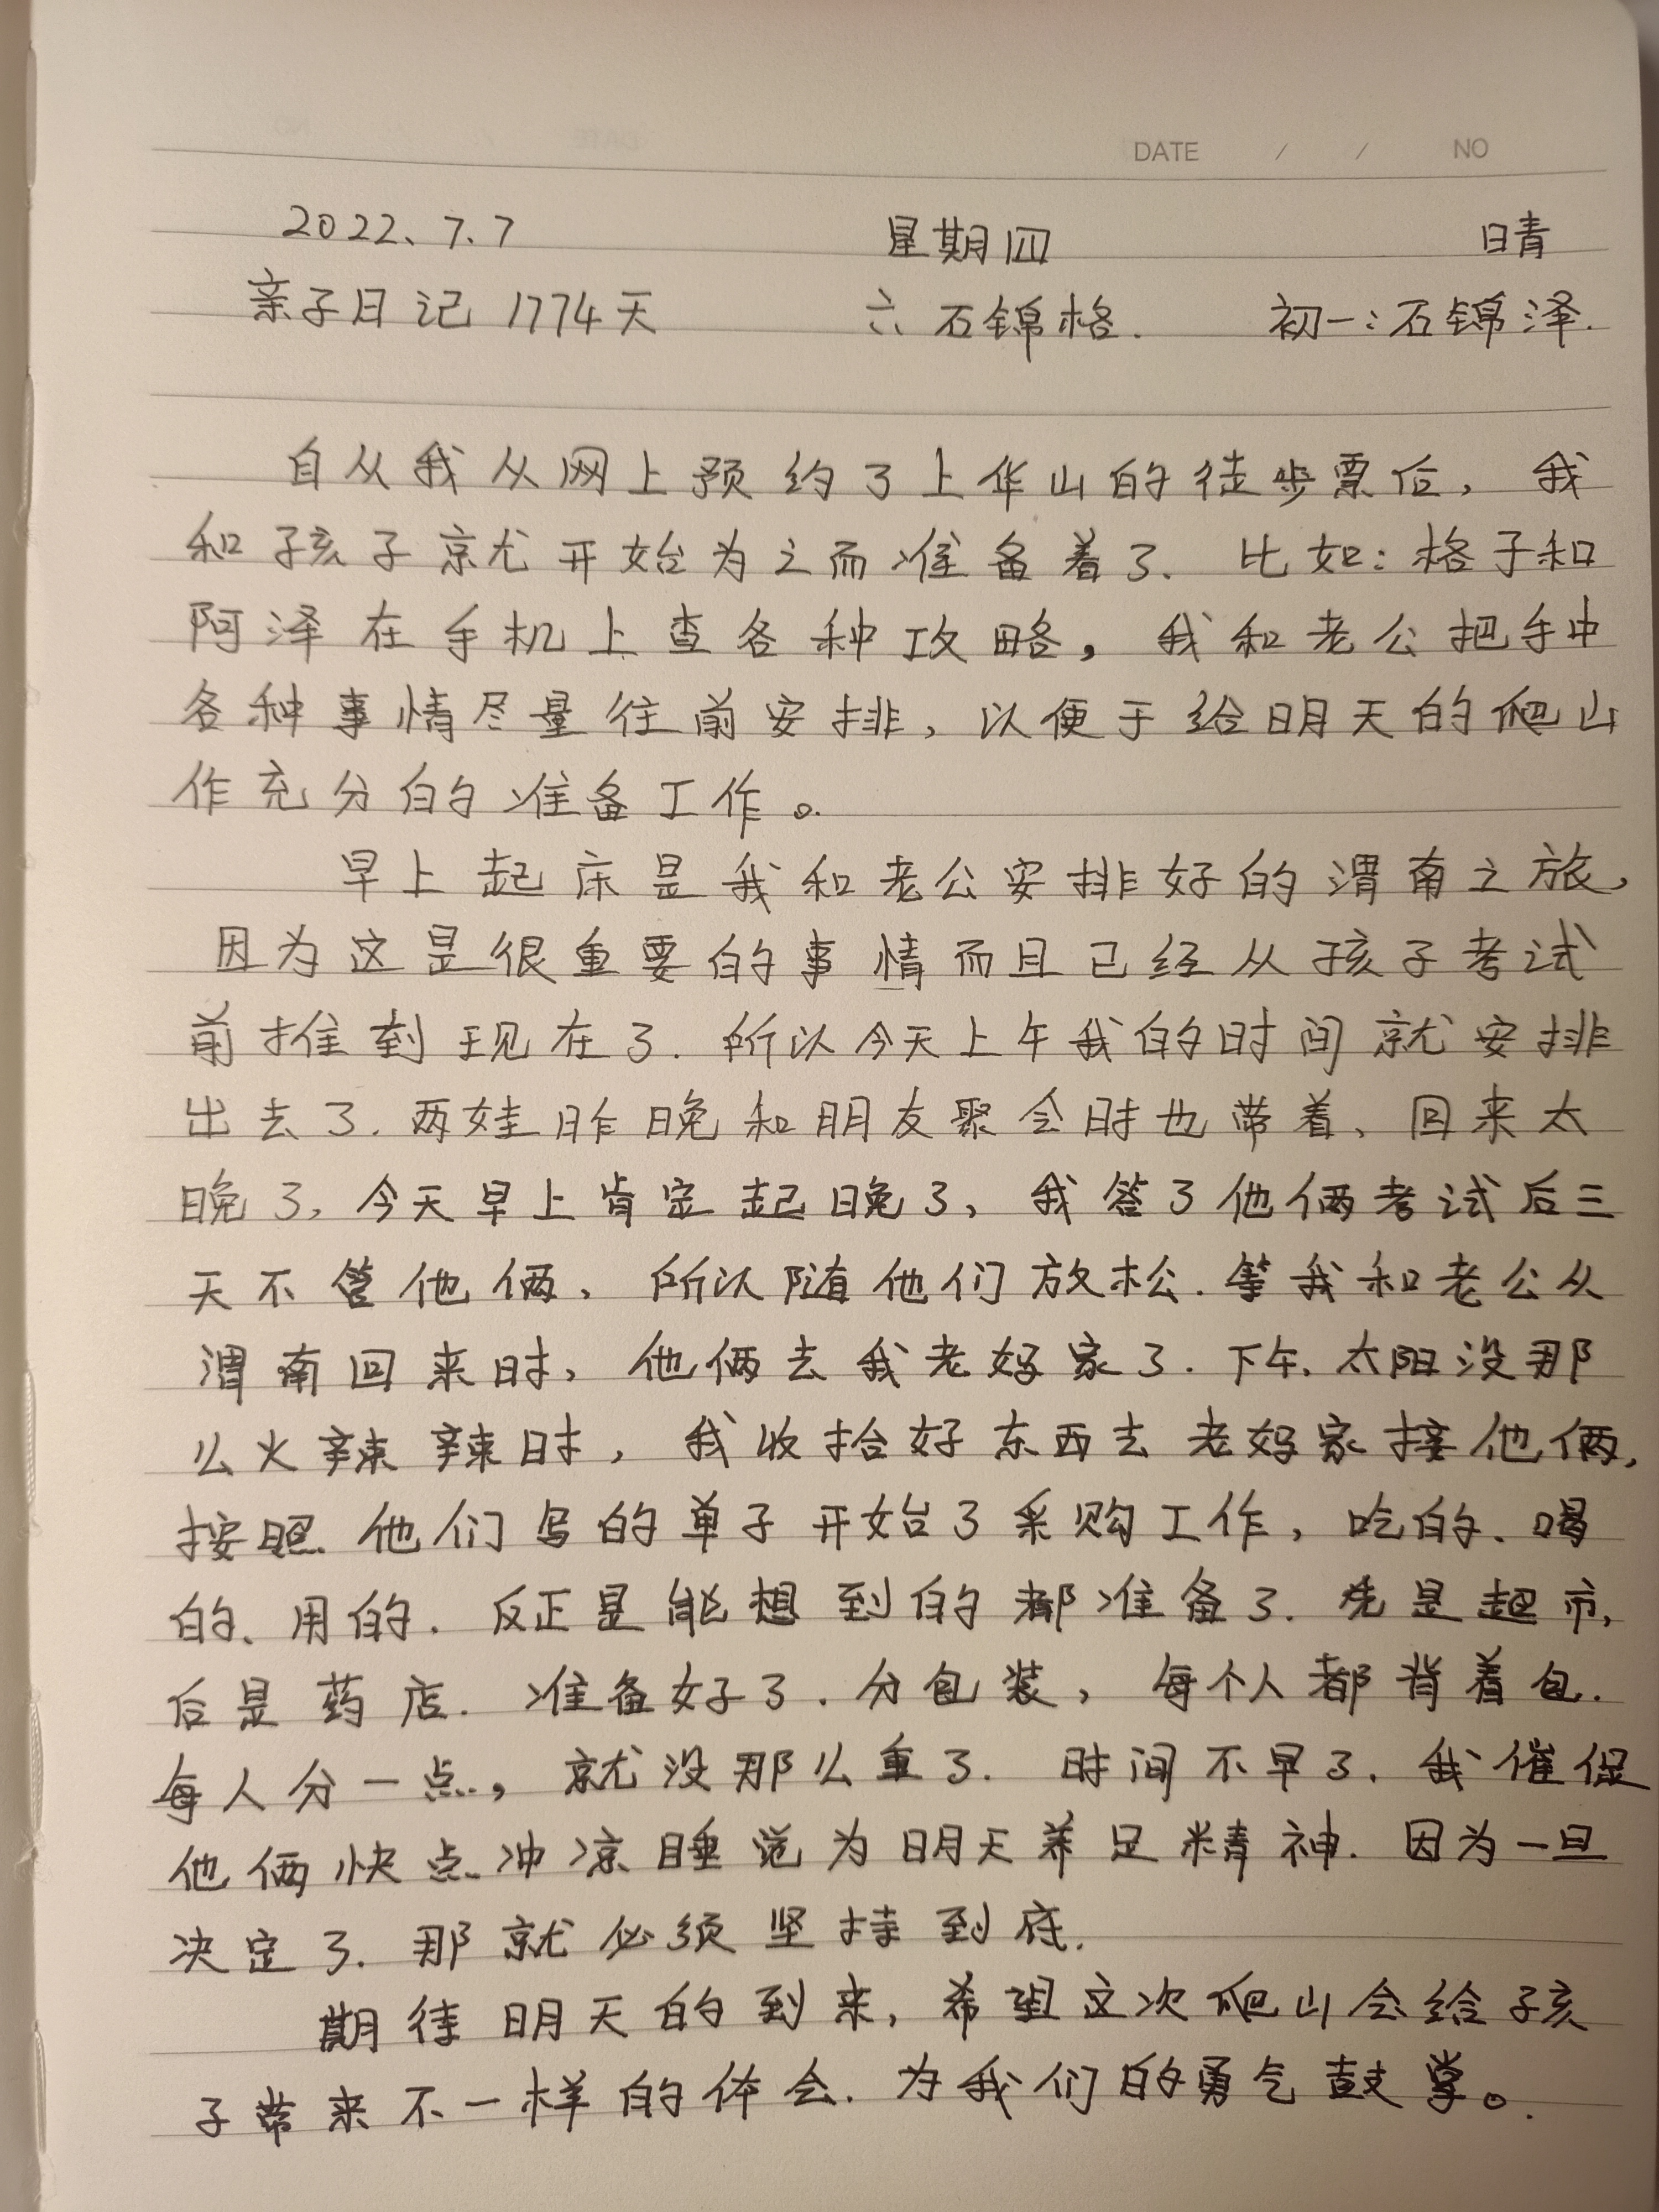 DATE / / NO
2022、7.7 星期四 晴
亲子日记 1774天 六 石锦格. 初一:石锦泽.
自从我从网上预约了上华山的徒步票后，我
和孩子就开始为之而准备着了. 比如:格子和
阿泽在手机上查各种攻略，我和老公把手中
各种事情尽量往前安排，以便于给明天的爬山
作充分的准备工作。
早上起床是我和老公安排好的渭南之旅，
因为这是很重要的事情而且已经从孩子考试
前推到现在了. 所以今天上午我的时间就安排
出去了. 两娃昨晚和朋友聚会时也带着、回来太
晚了，今天早上肯定起晚了，我答了他俩考试后三
天不管他俩、所以随他们放松. 等我和老公从
渭南回来时，他俩去我老妈家了. 下午、太阳没那
么火辣辣时，我收拾好东西去老妈家接他俩，
按照他们写的单子开始了采购工作，吃的、喝
的、用的. 反正是能想到的都准备了. 先是超市，
后是药店. 准备好了. 分包装，每个人都背着包.
每人分一点，就没那么重了. 时间不早了. 我催促
他俩快点冲凉睡觉为明天养足精神. 因为一旦
决定了. 那就必须坚持到底.
期待明天的到来，希望这次爬山会给孩
子带来不一样的体会. 为我们的勇气鼓掌。